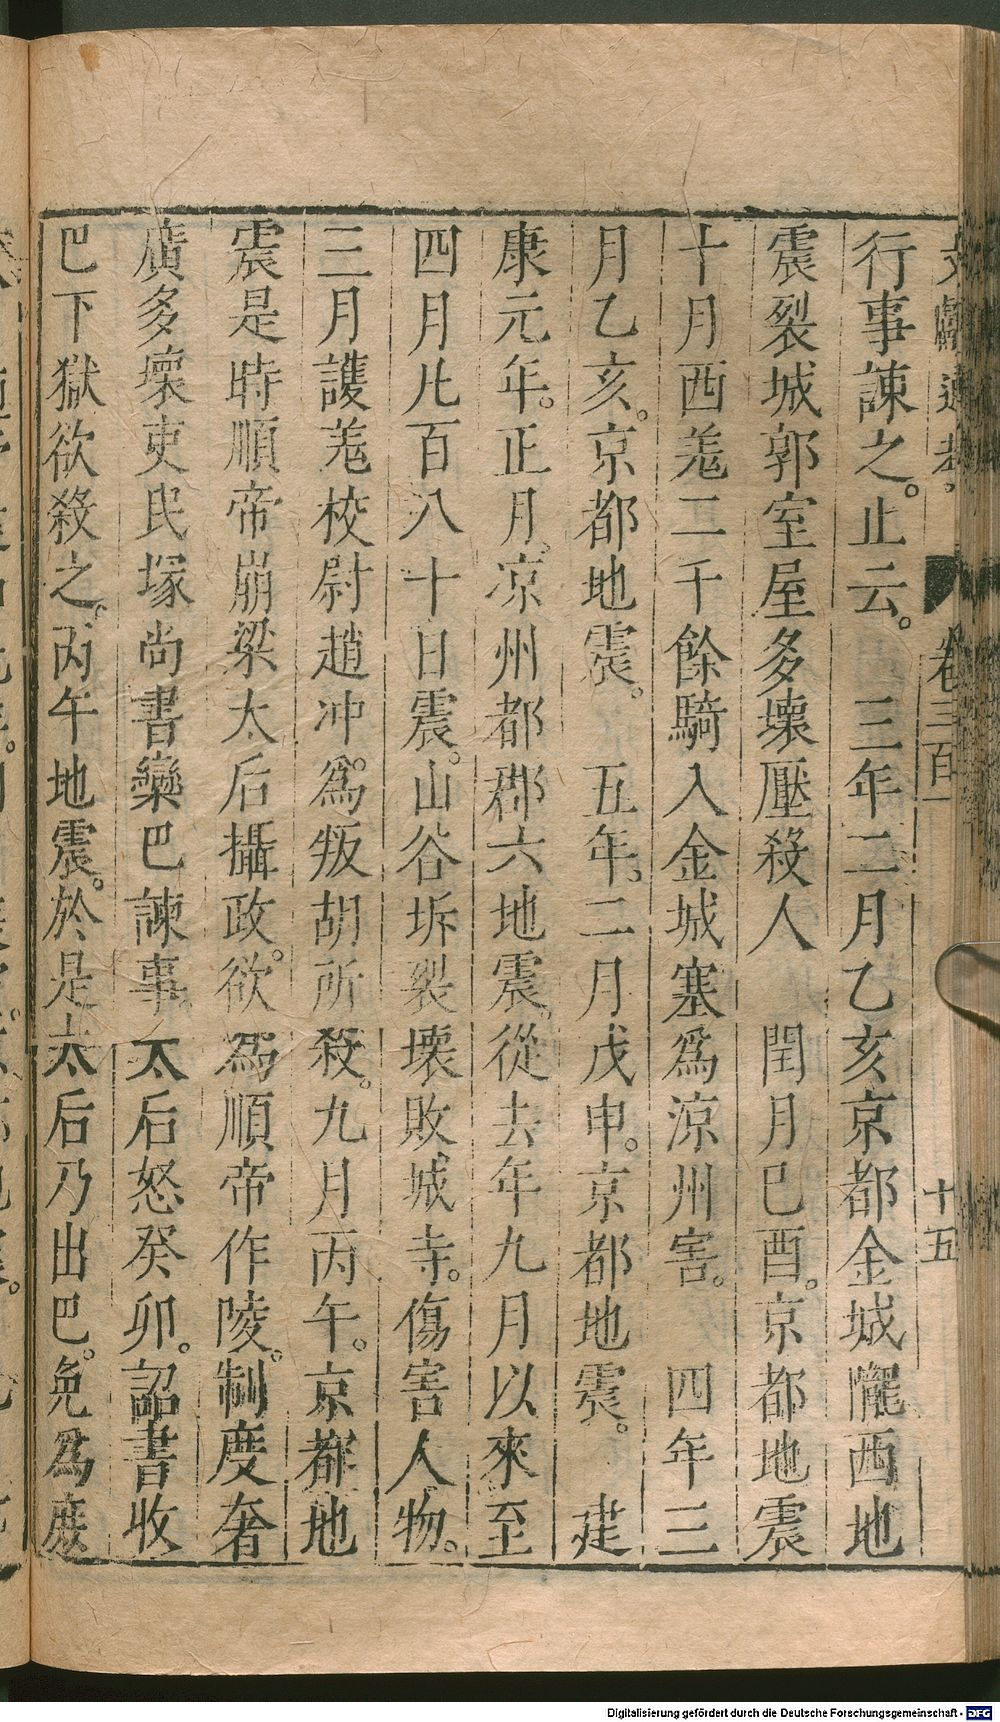 文獻通考 卷三百一 十五
行事諫之。止云。 三年二月乙亥京都金城隴西地
震裂城郭室屋多壞壓殺人 閏月巳酉。京都地震
十月西羗二千餘騎入金城塞爲涼州害。 四年三
月乙亥。京都地震。 五年。二月戊申。京都地震。 建
康元年。正月。凉州都郡六地震。從去年九月以來至
四月凡百八十日震。山谷坼裂壞敗城寺。傷害人物。
三月護羗校尉趙冲。爲叛胡所殺。九月丙午。京都地
震是時順帝崩梁太后攝政。欲爲順帝作陵。制度奢
廣多壞吏民塚。尚書欒巴諫事。太后怒癸卯。詔書收
巴下獄欲殺之。丙午地震。於是太后乃出巴。免爲庻
Digitalisierung gefördert durch die Deutsche Forschungsgemeinschaft - DFG